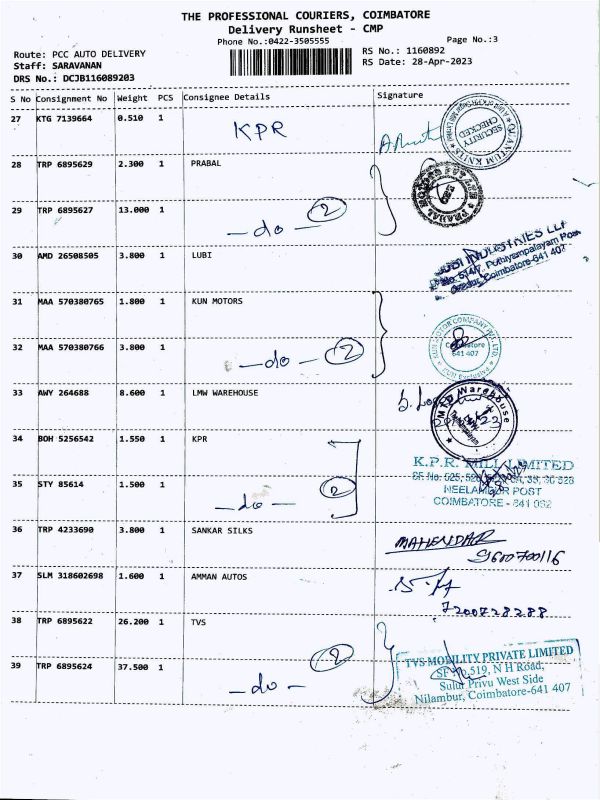 THE PROFESSIONAL COURIERS, COIMBATORE
Delivery Runsheet - CMP
Phone No.:0422-3505555
Page No.:3
Route: PCC AUTO DELIVERY
Staff: SARAVANAN
DRS No.: DCJB116089203
RS No.: 1160892
RS Date: 28-Apr-2023
S No Consignment No Weight PCS Consignee Details Signature
27 KTG 7139664 0.510 1 KPR
QUANTUM KNITS
SECURITY CHECKED
28 TRP 6895629 2.300 1 PRABAL
PRABAL MOTORS
29 TRP 6895627 13.000 1 —do— 2
30 AMD 26508505 3.800 1 LUBI
LUBI INDUSTRIES LLP
Puthiyampalayam Post
Coimbatore-641 407
31 MAA 570380765 1.800 1 KUN MOTORS
KUN MOTOR COMPANY PVT. LTD.
Coimbatore
641 407
32 MAA 570380766 3.800 1 —do— 2
33 AWY 264688 8.600 1 LMW WAREHOUSE
Warehouse
34 BOH 5256542 1.550 1 KPR
K.P.R. MILL LIMITED
35 STY 85614 1.500 1 —do— 2
NEELAMBUR POST
COIMBATORE - 641 062
36 TRP 4233690 3.800 1 SANKAR SILKS
MAHENDAR
9600700116
37 SLM 318602698 1.600 1 AMMAN AUTOS
7200728288
38 TRP 6895622 26.200 1 TVS
TVS MOBILITY PRIVATE LIMITED
39 TRP 6895624 37.500 1 —do— 2
SF No.519, N H Road,
Sulur Privu West Side
Nilambur, Coimbatore-641 407